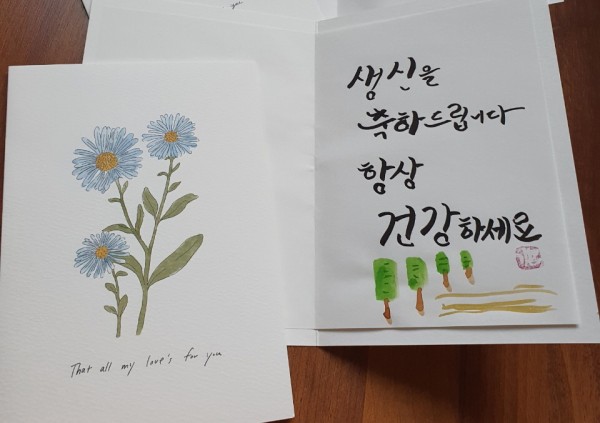 you
생신을
축하드립니다
항상
건강하세요
That all my love's for you